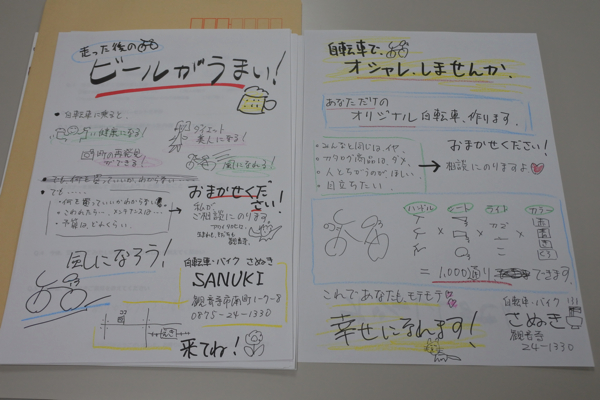 走った後の
ビールがうまい!
• 自転車に乗ると、
健康になる!
ダイエット
美人になる!
町の再発見
ができる!
風になれる!
• でも 何を買っていいか、わから
• でも……
• 何を買っていいかわから
• こわれたら… メンテナンスは…
• 予算は、どんくらい。
おまかせくだ
さい!
私が
ご相談にのります。
風になろう!
自転車・バイク さぬき
SANUKI
観音寺市南町1-7-8
0875-24-1330
来てね!
自転車で、
オシャレ、しませんか、
あなただけの
オリジナル自転車、作ります。
• みんなと同じは、イヤ、
• カタログ商品は、ダメ、
• 人とちがうがほしい、
• 目立ちたい、
おまかせください!
相談にのりますよ
ハンドル
シート
ライト
カラー
赤
青
= 1,000通り
できます。
これであなたも、モテモテ
幸せになれます!
自転車・バイク
さぬき
観音寺
24-1330